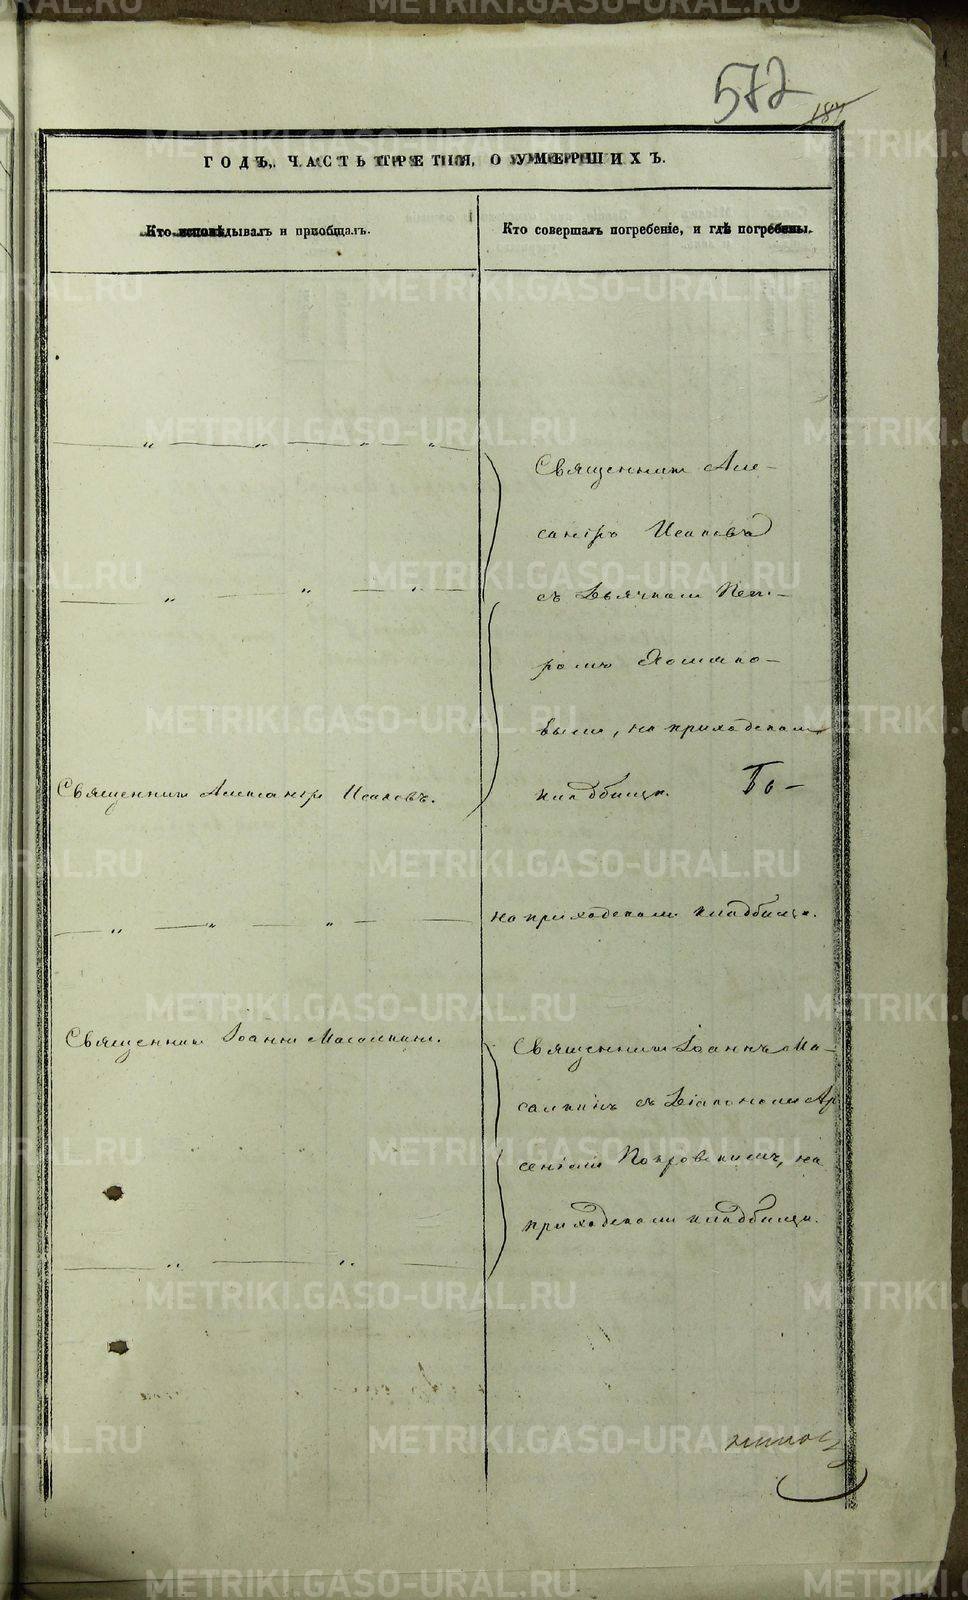 572
187
ГОДЪ, ЧАСТЬ ТРЕТІЯ, О УМЕРШИХЪ.
Кто исповѣдывалъ и пріобщалъ.
Кто совершалъ погребеніе, и гдѣ погребены.
Священникъ Але-
сандръ Исаковъ
съ Дьячкомъ Пет-
ромъ
выми, на приходскомъ
Священникъ Александръ Исаковъ.
кладбищѣ. Бо-
на приходскомъ кладбищѣ.
Священникъ Іоаннъ Масалкинъ.
Священникъ Іоаннъ Ма-
салкинъ съ Діакономъ Ар
сеніемъ Покровскимъ, на
приходскомъ кладбищѣ.
METRIKI.GASO-URAL.RU